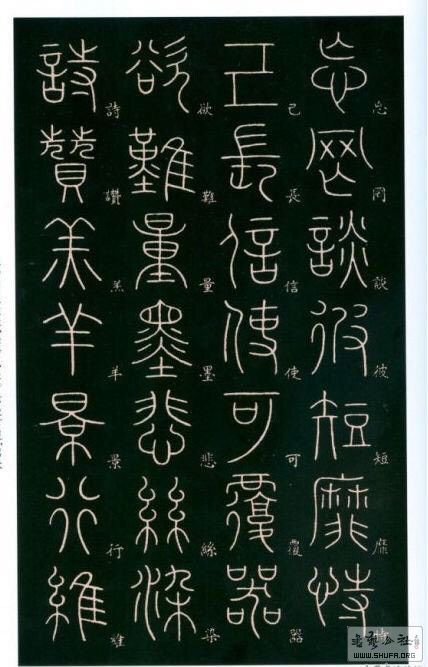 忘罔談彼短靡恃
忘罔談彼短靡
己長信使可覆器
己長信使可覆器
欲難量墨悲絲染
欲難量墨悲絲染
詩贊羔羊景行維
詩讚羔羊景行維
WWW.SHUFA.ORG